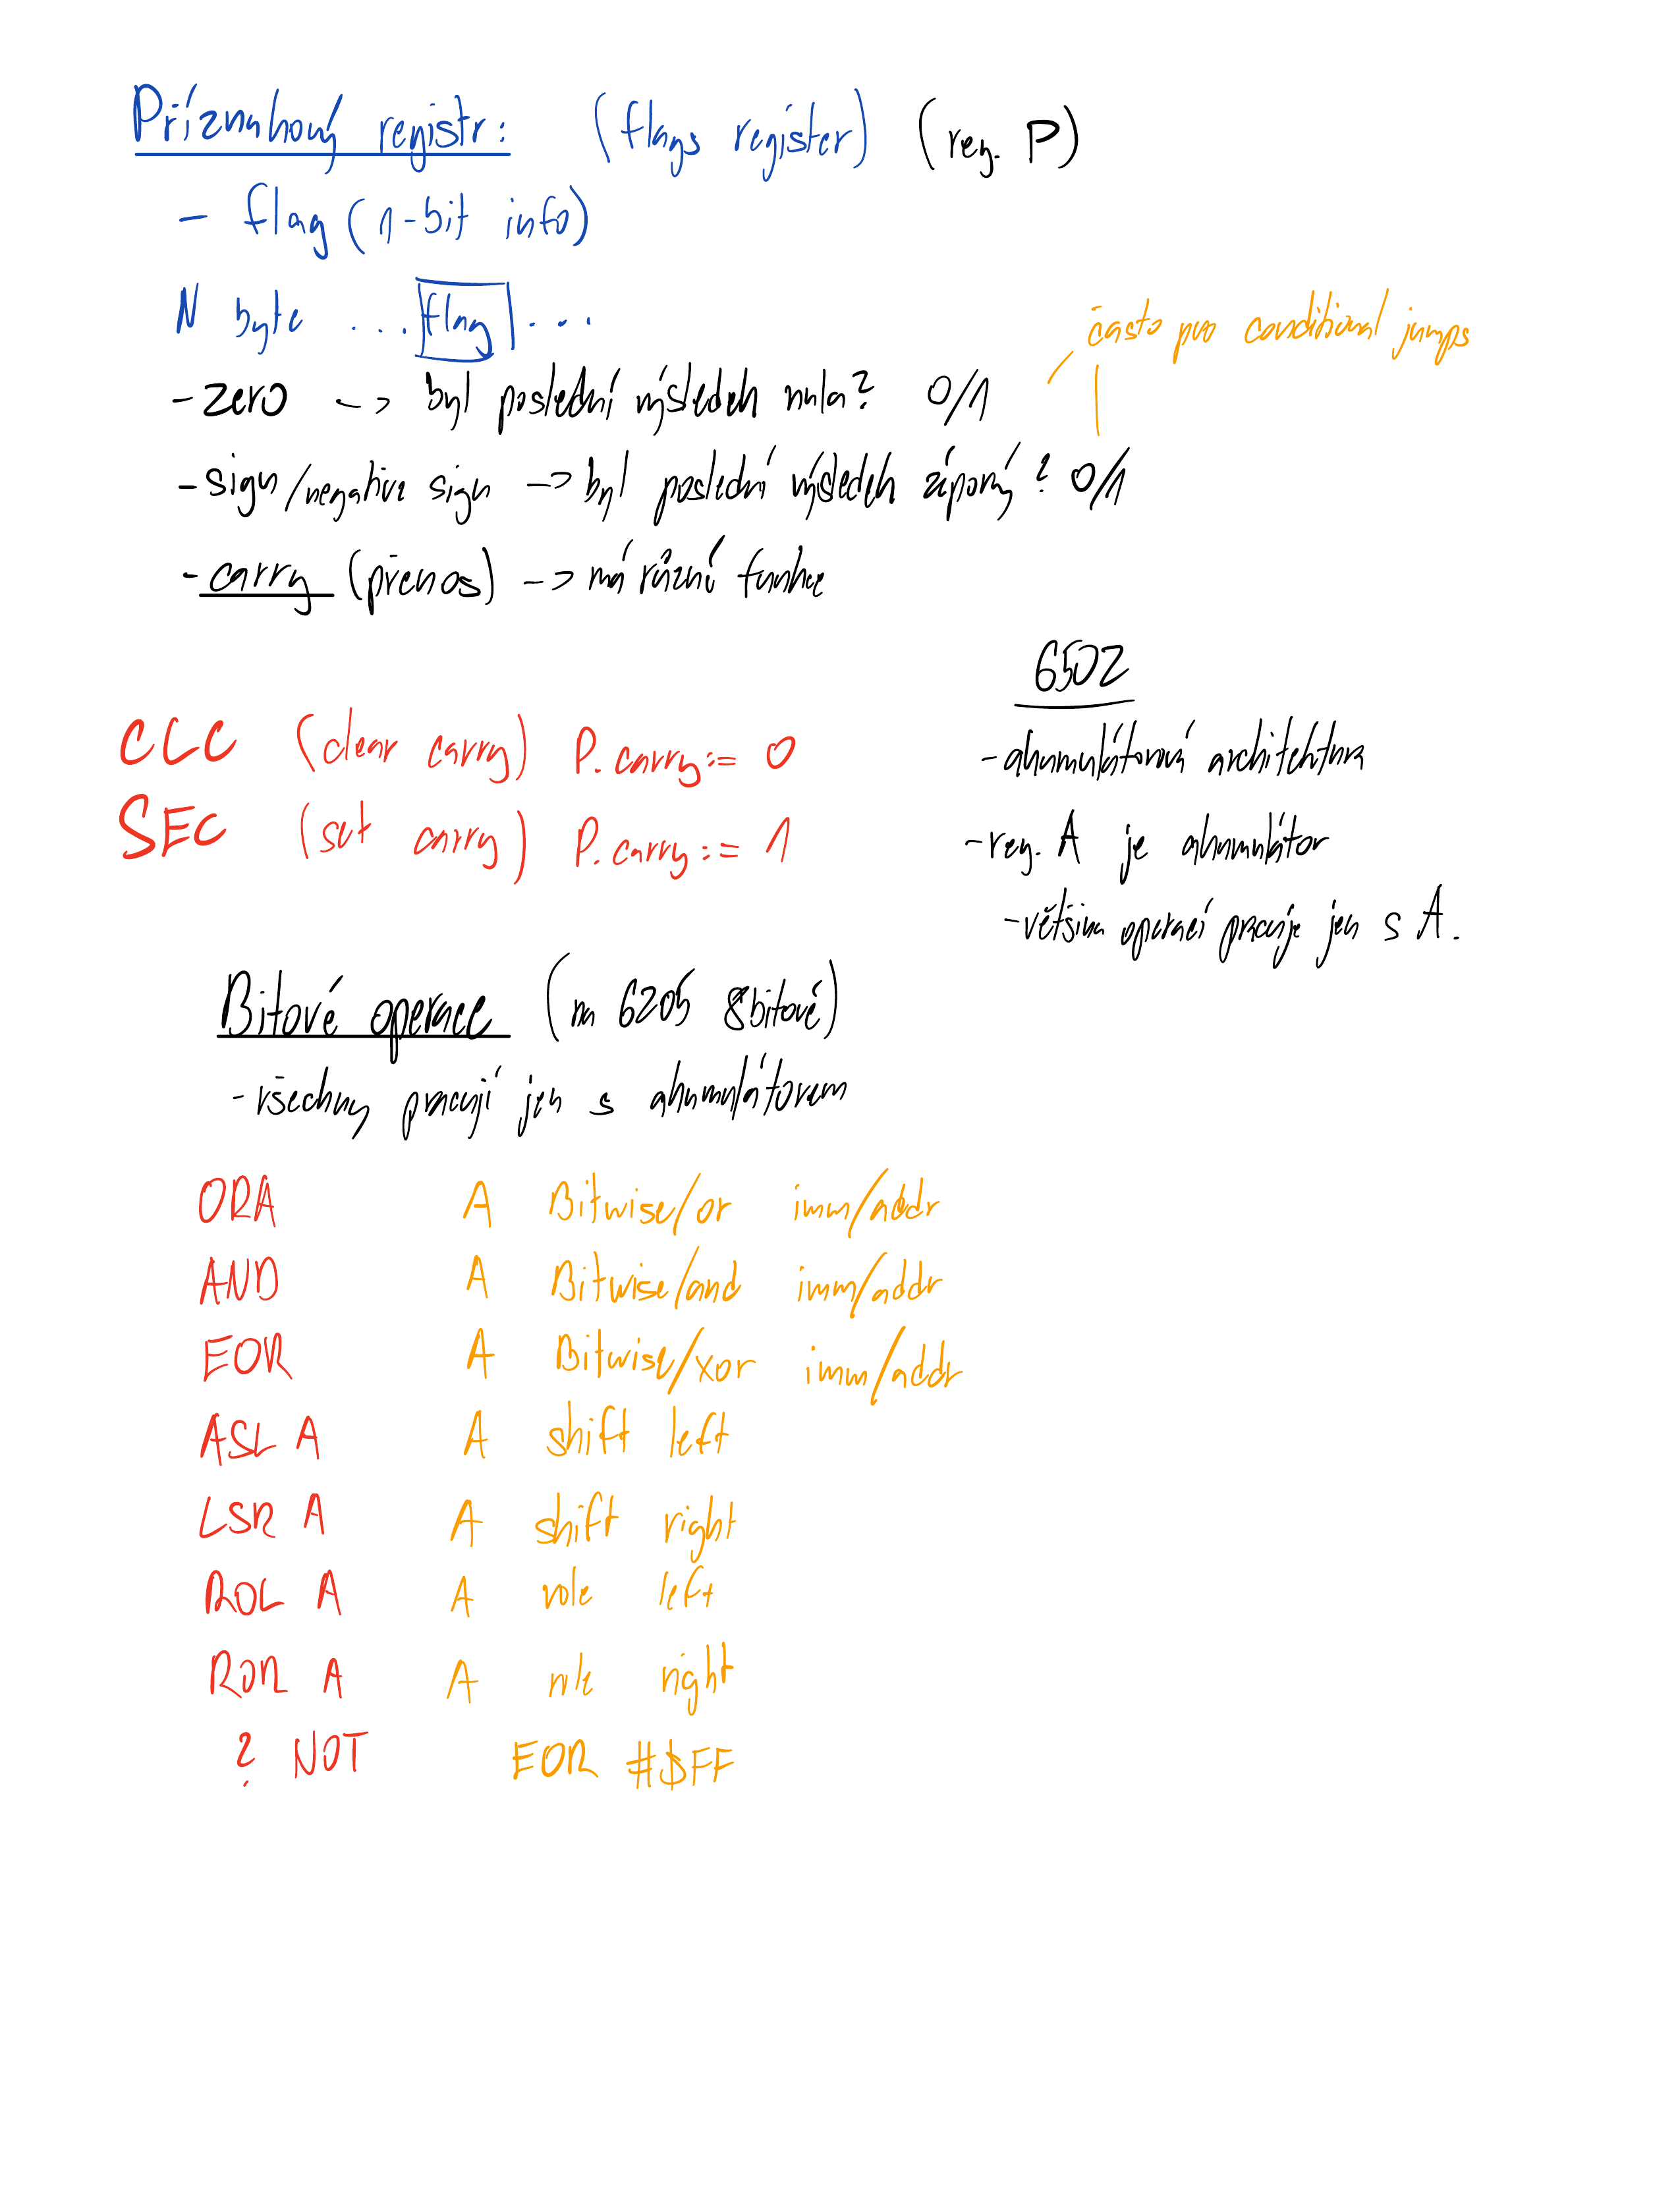 Příznakový registr: (flags register) (reg. P)
- flag (1-bit info)
N byte ... flag ...
často pro conditional jumps
- zero -> byl poslední výsledek nula? 0/1
- sign/negative sign -> byl poslední výsledek záporný? 0/1
- carry (přenos) -> má různé funkce
6502
CLC (clear carry) P.carry := 0
SEC (set carry) P.carry := 1
- akumulátorová architektura
- reg. A je akumulátor
- většina operací pracuje jen s A.
Bitové operace (na 6205 8bitové)
- všechny pracují jen s akumulátorem
ORA A Bitwise/or imm/addr
AND A Bitwise/and imm/addr
EOR A Bitwise/xor imm/addr
ASL A A shift left
LSR A A shift right
ROL A A left
ROR A A right
? NOT EOR #$FF